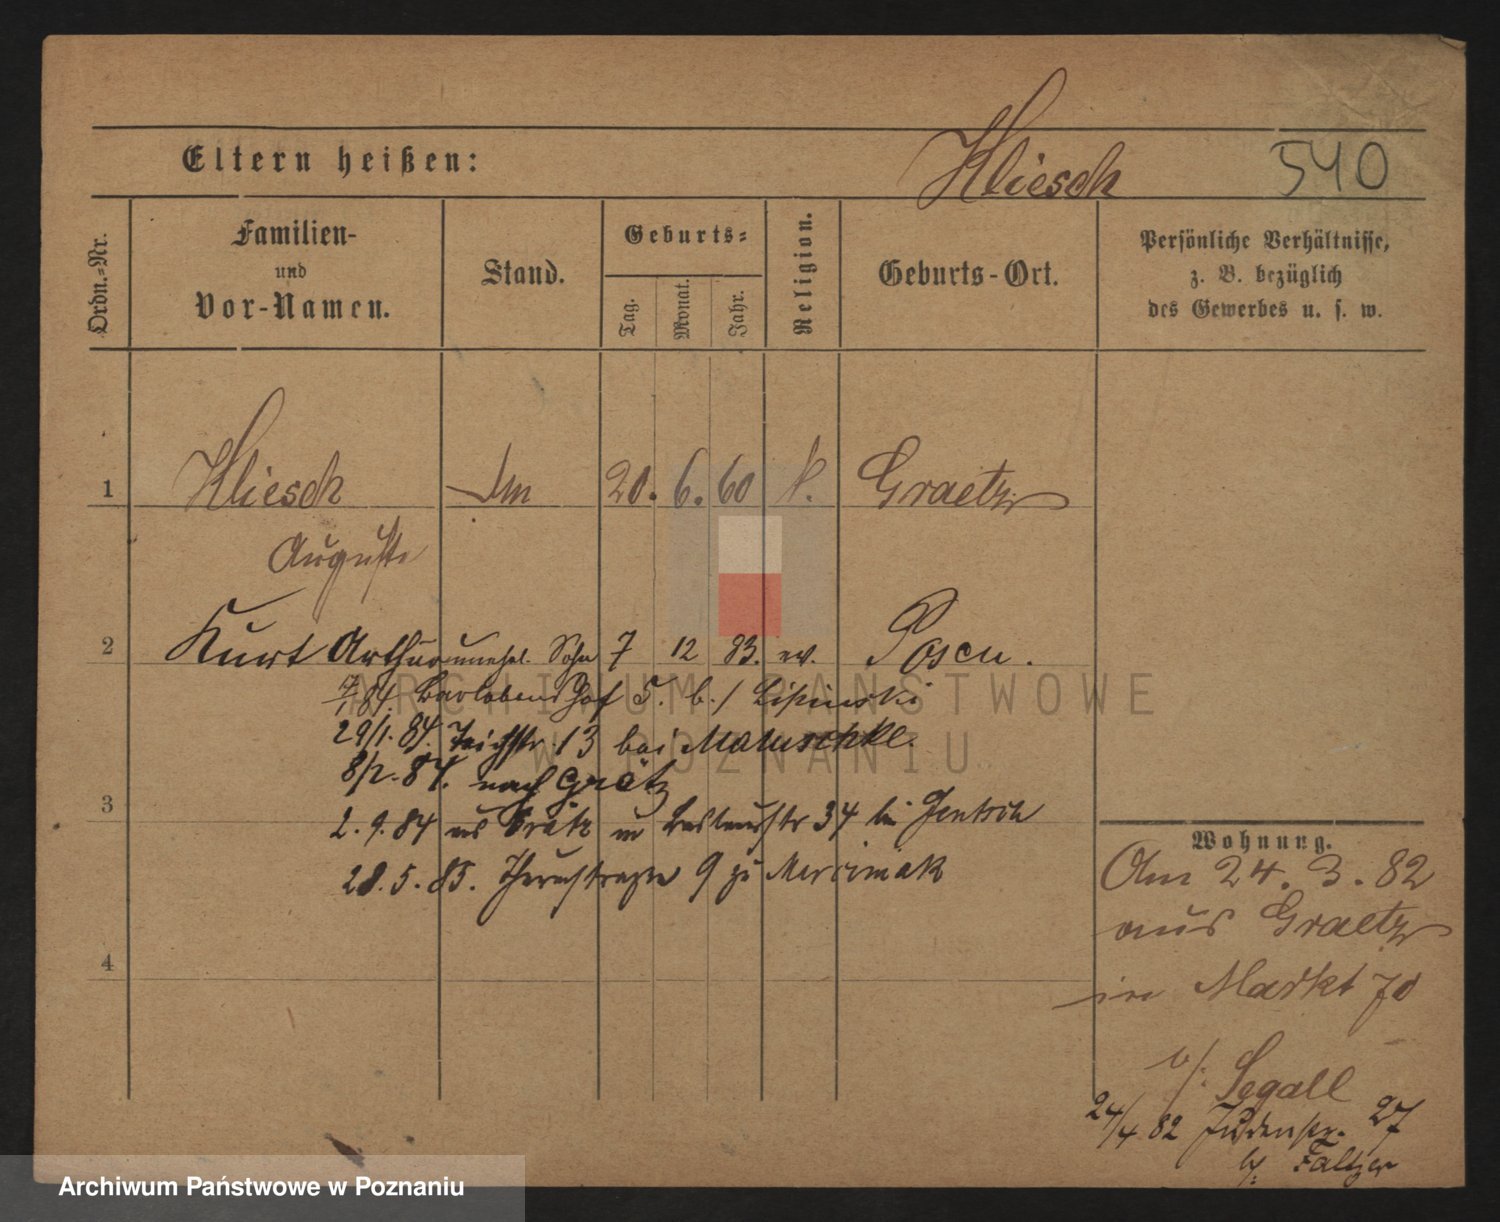 Eltern heißen:
Kliesch
540
Ordn.-Nr.
Familien-
und
Vor-Namen.
Stand.
Geburts-
Tag.
Monat.
Jahr.
Religion.
Geburts-Ort.
Persönliche Verhältnisse,
z. B. bezüglich
des Gewerbes u. s. w.
1 Kliesch 20. 6. 60 k. Graetz
Auguste
2 Kurt Arthur unehel. Sohn 7 12 83. ev. Posen.
84. 5. b./ Lipinski
29/1. 84. Teichstr. 13 bei Matuschke.
8/2. 84. nach Grätz
3
2. 9. 84 aus Grätz 34 bei Jentsch
28. 5. 85. 9 zu Marciniak
4
Wohnung.
Am 24. 3. 82
aus Graetz
in Markt 70
b/: Segall
24/4 82 Judenstr. 27
b/: Faltzer
ARCHIWUM PAŃSTWOWE
W POZNANIU
Archiwum Państwowe w Poznaniu